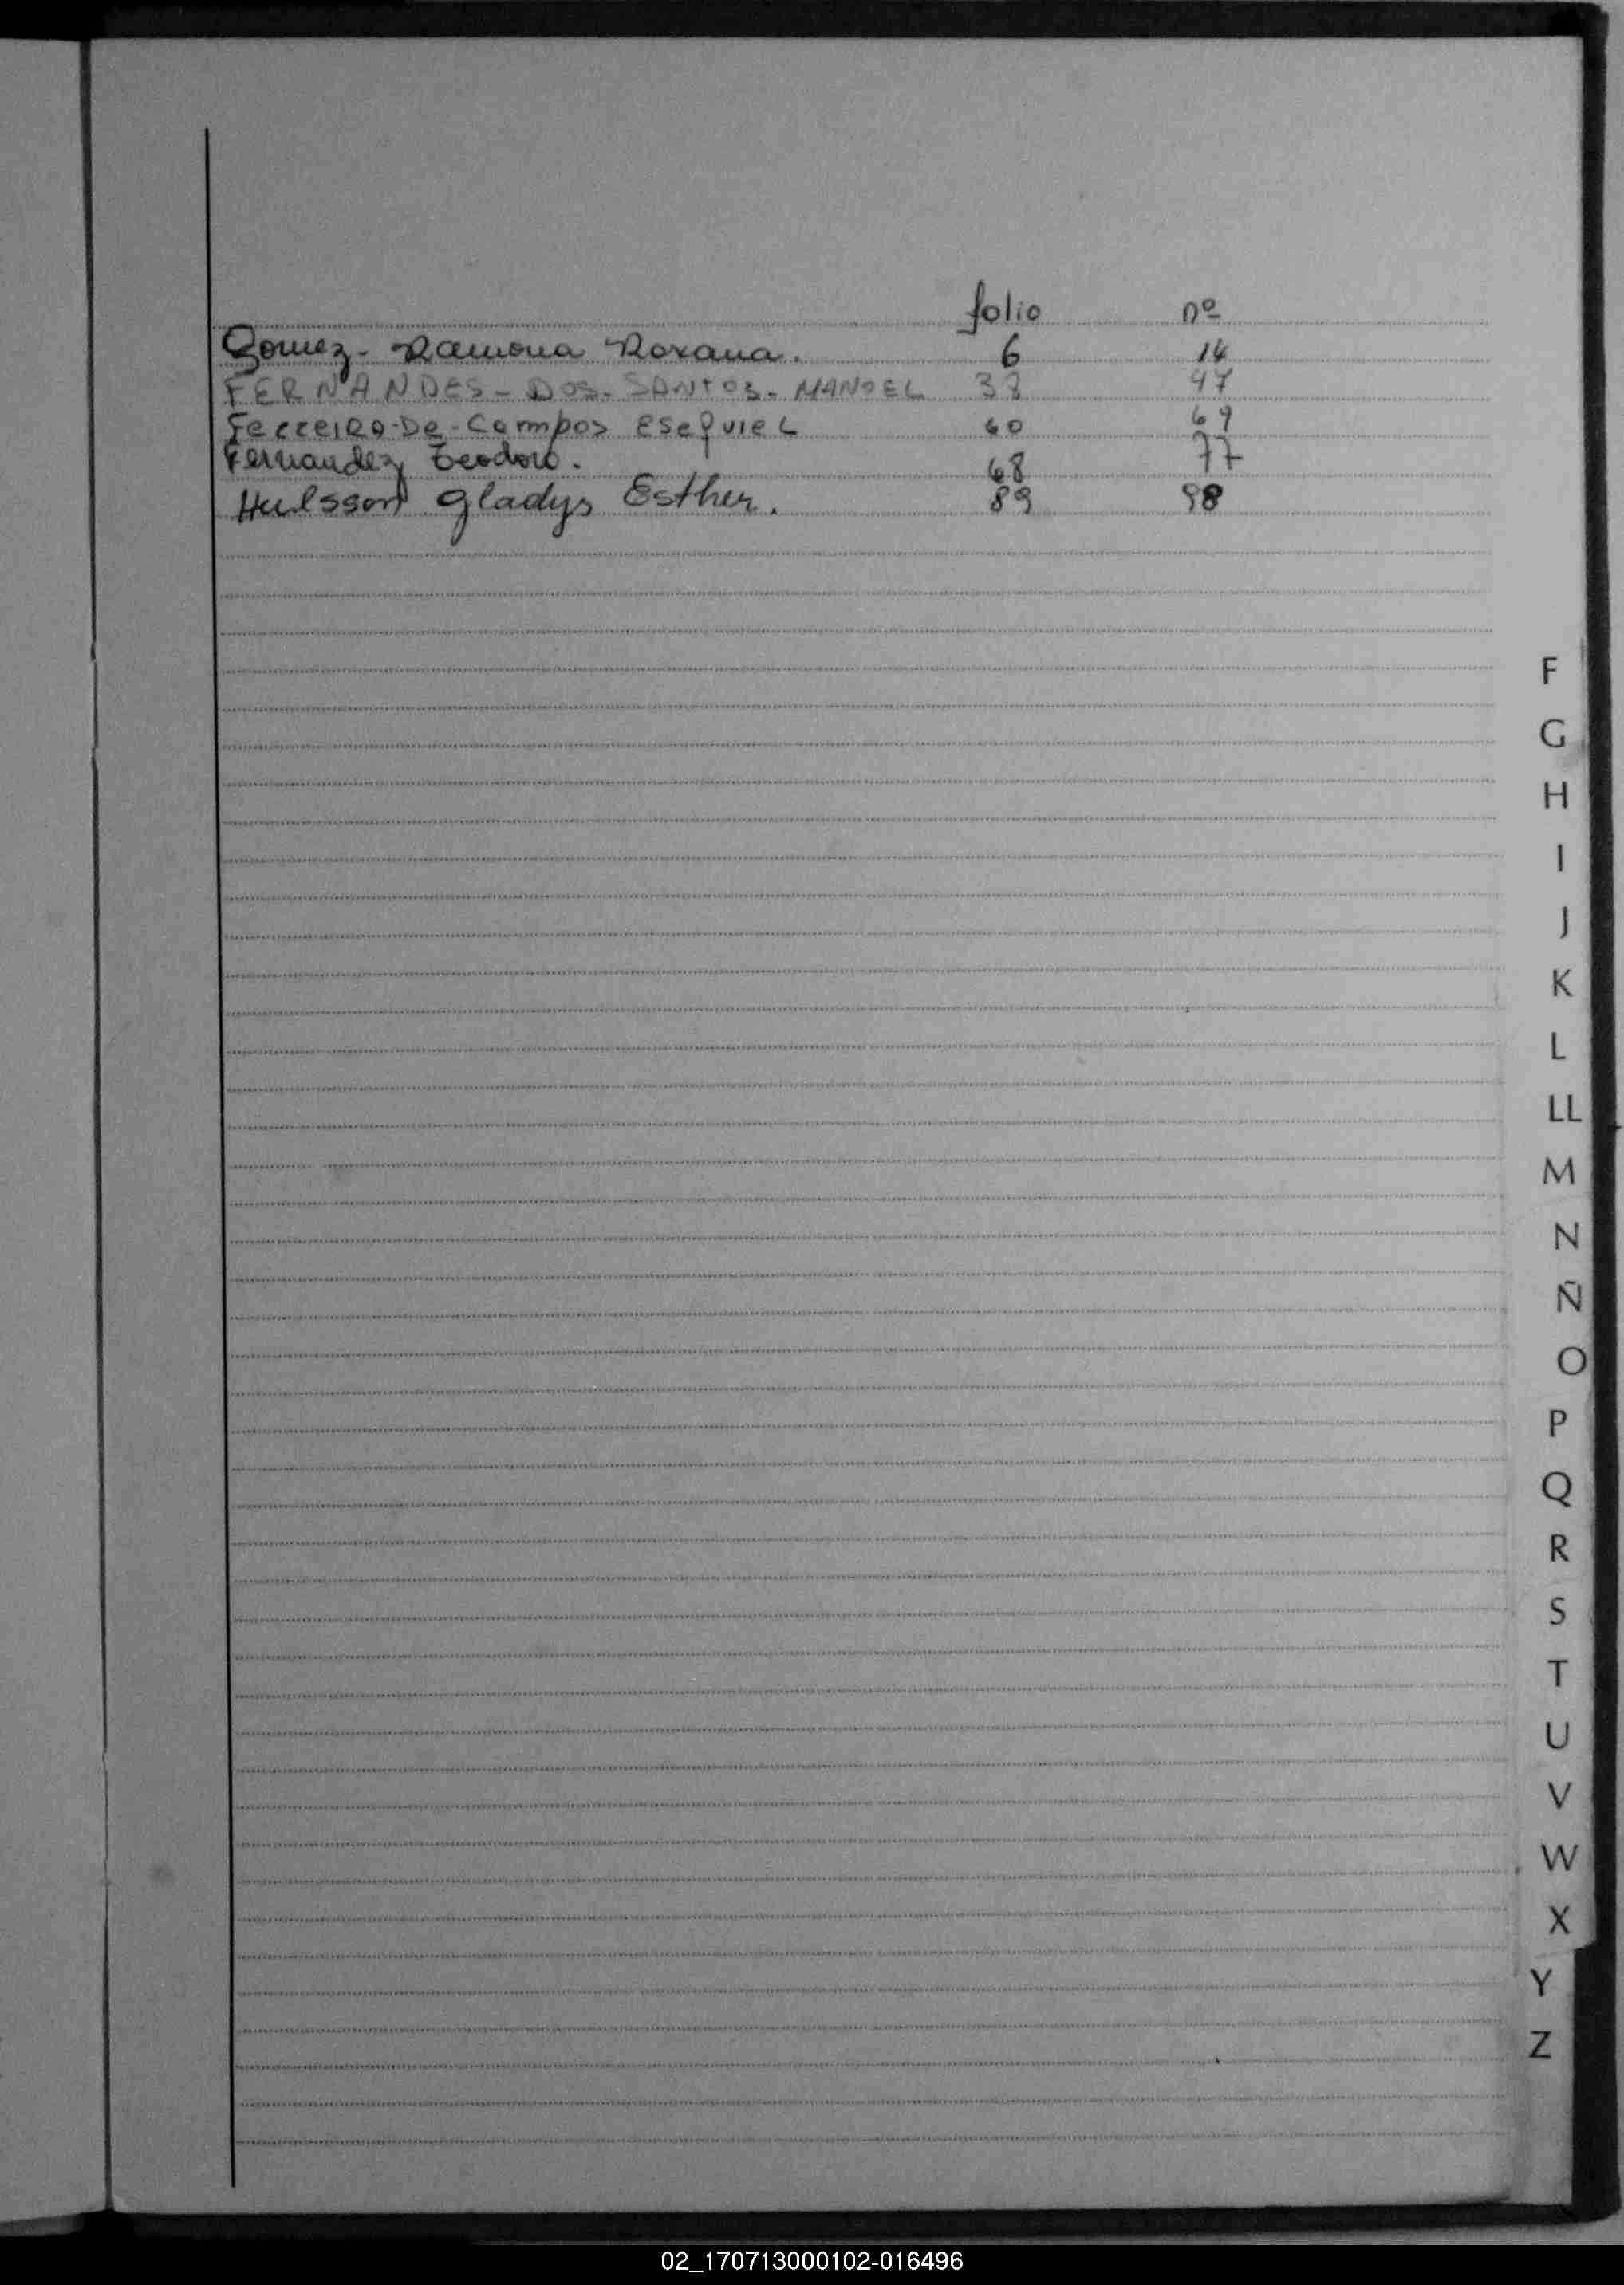 folio nº
Gomez - Ramona Roxana. 6 14
FERNANDES - DOS - SANTOS - MANOEL 38 47
Ferreira - De - Campos Esequiel 60 69
Fernandez Teodoro. 68 77
Hulsson Gladys Esther. 89 98
F
G
H
I
J
K
L
LL
M
N
Ñ
O
P
Q
R
S
T
U
V
W
X
Y
Z
02_170713000102-016496